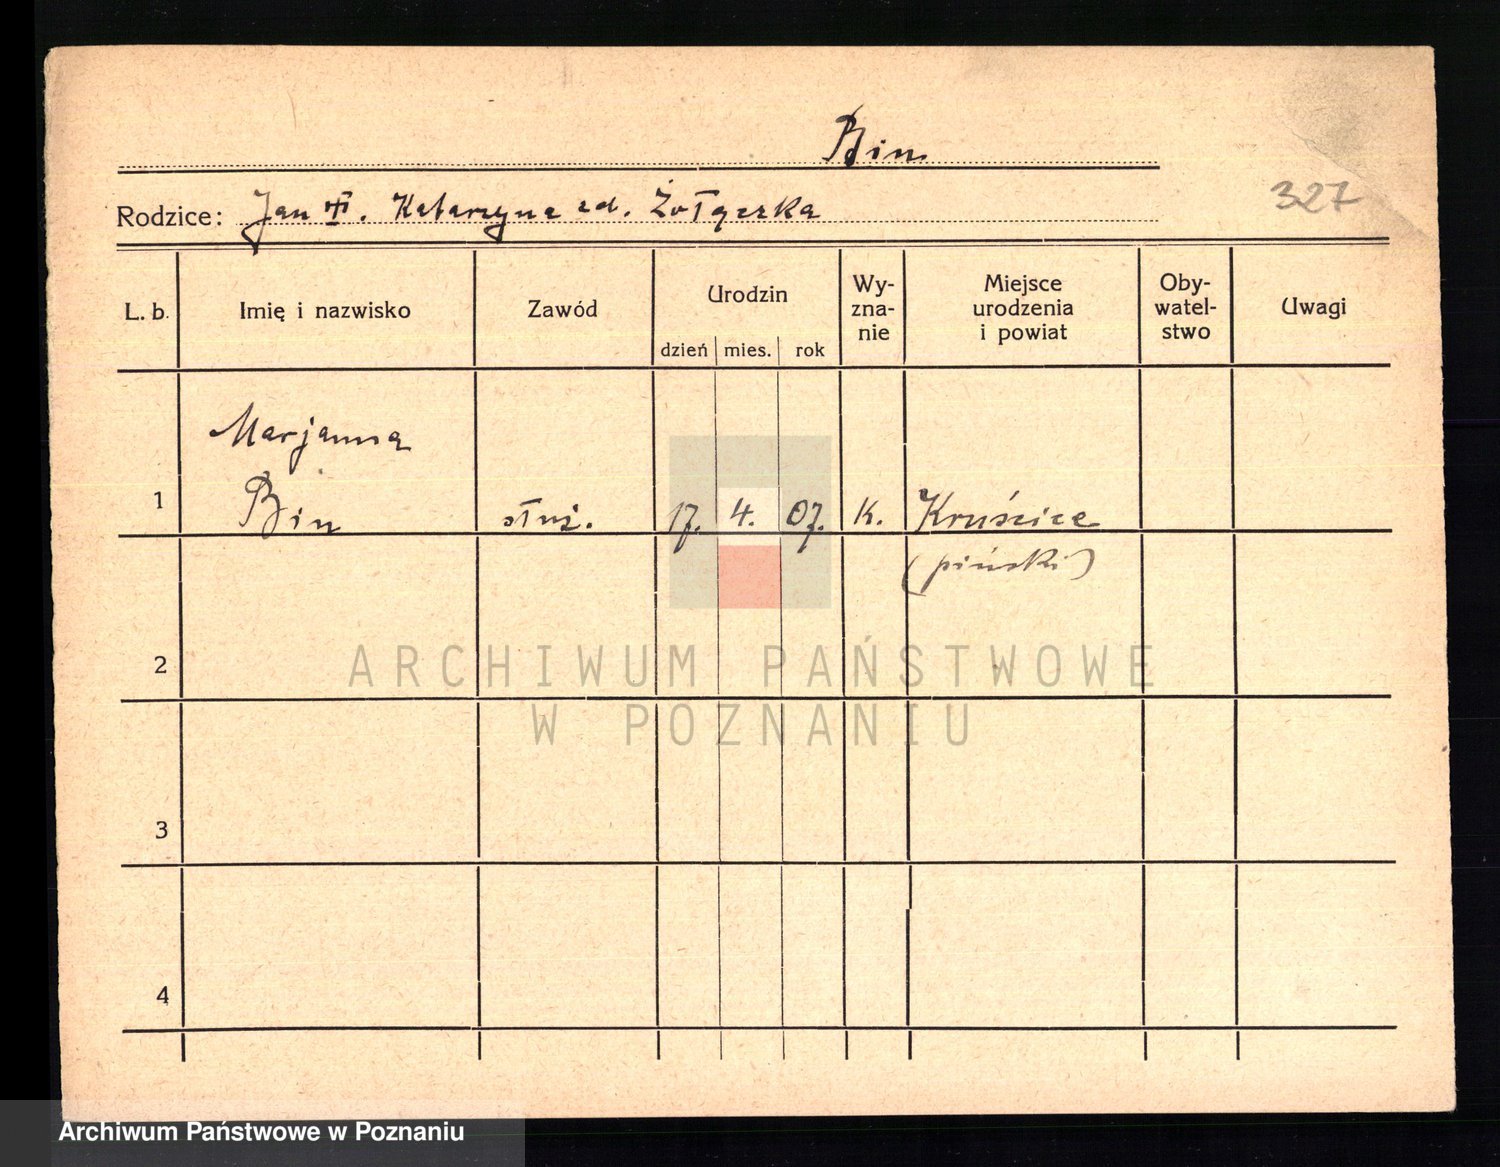 Bin
327
Rodzice: Jan ✝. Katarzyna zd. Żołączka
L. b. Imię i nazwisko Zawód Urodzin dzień mies. rok Wy-zna-nie Miejsce urodzenia i powiat Oby-watel-stwo Uwagi
Marjanna
1 Bin służ. 17. 4. 07. K.
(piński)
2
ARCHIWUM PAŃSTWOWE
W POZNANIU
3
4
Archiwum Państwowe w Poznaniu